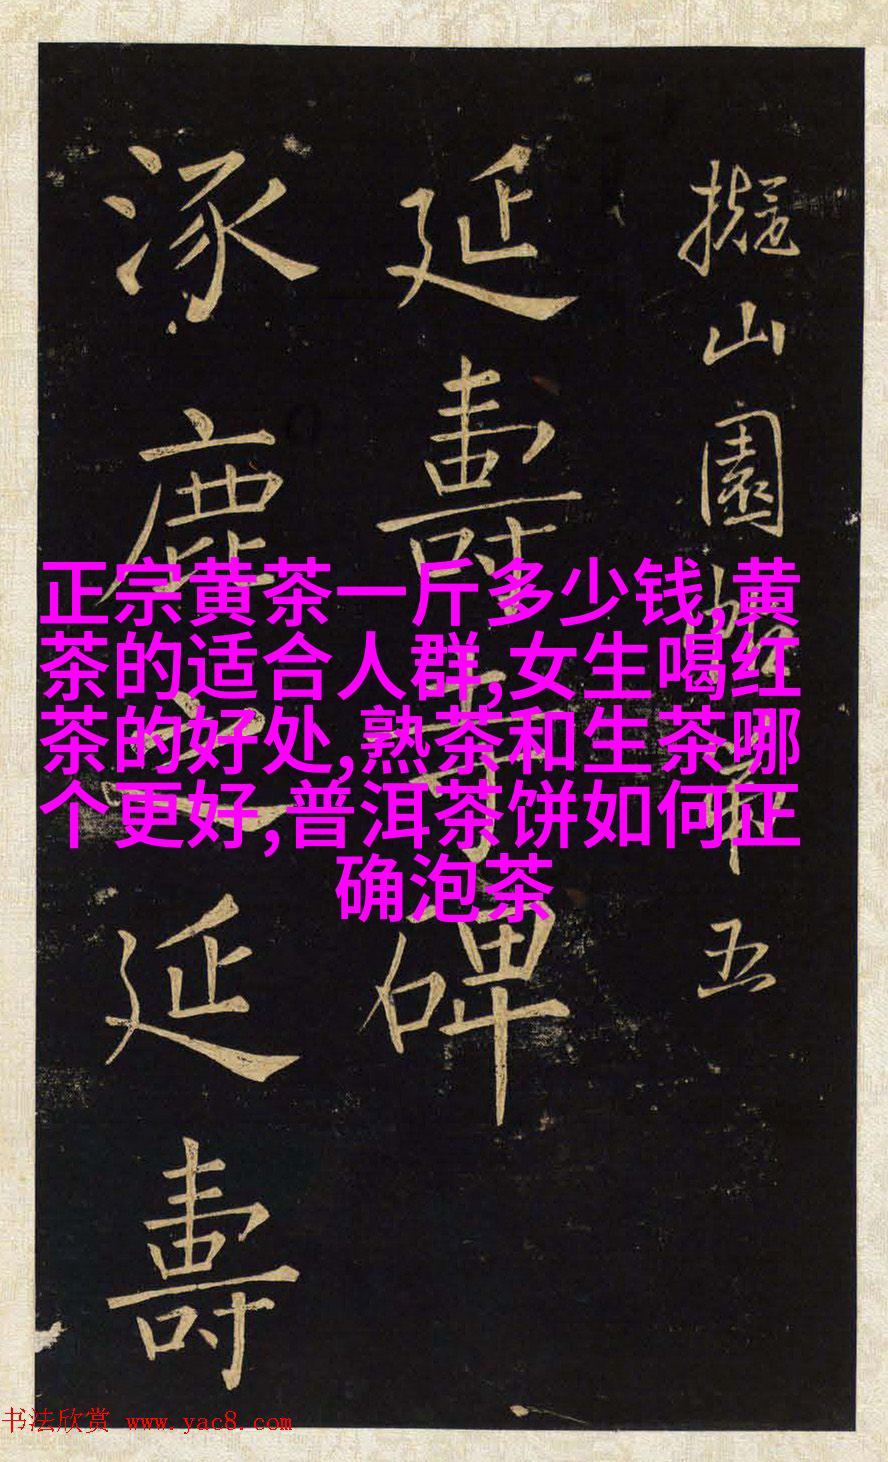 擬山園帖第五
延壽寺碑
涿鹿之延壽
正宗黄茶一斤多少钱,黄
茶的适合人群,女生喝红
茶的好处,熟茶和生茶哪
个更好,普洱茶饼如何正
确泡茶
书法欣赏 www.yac8.com